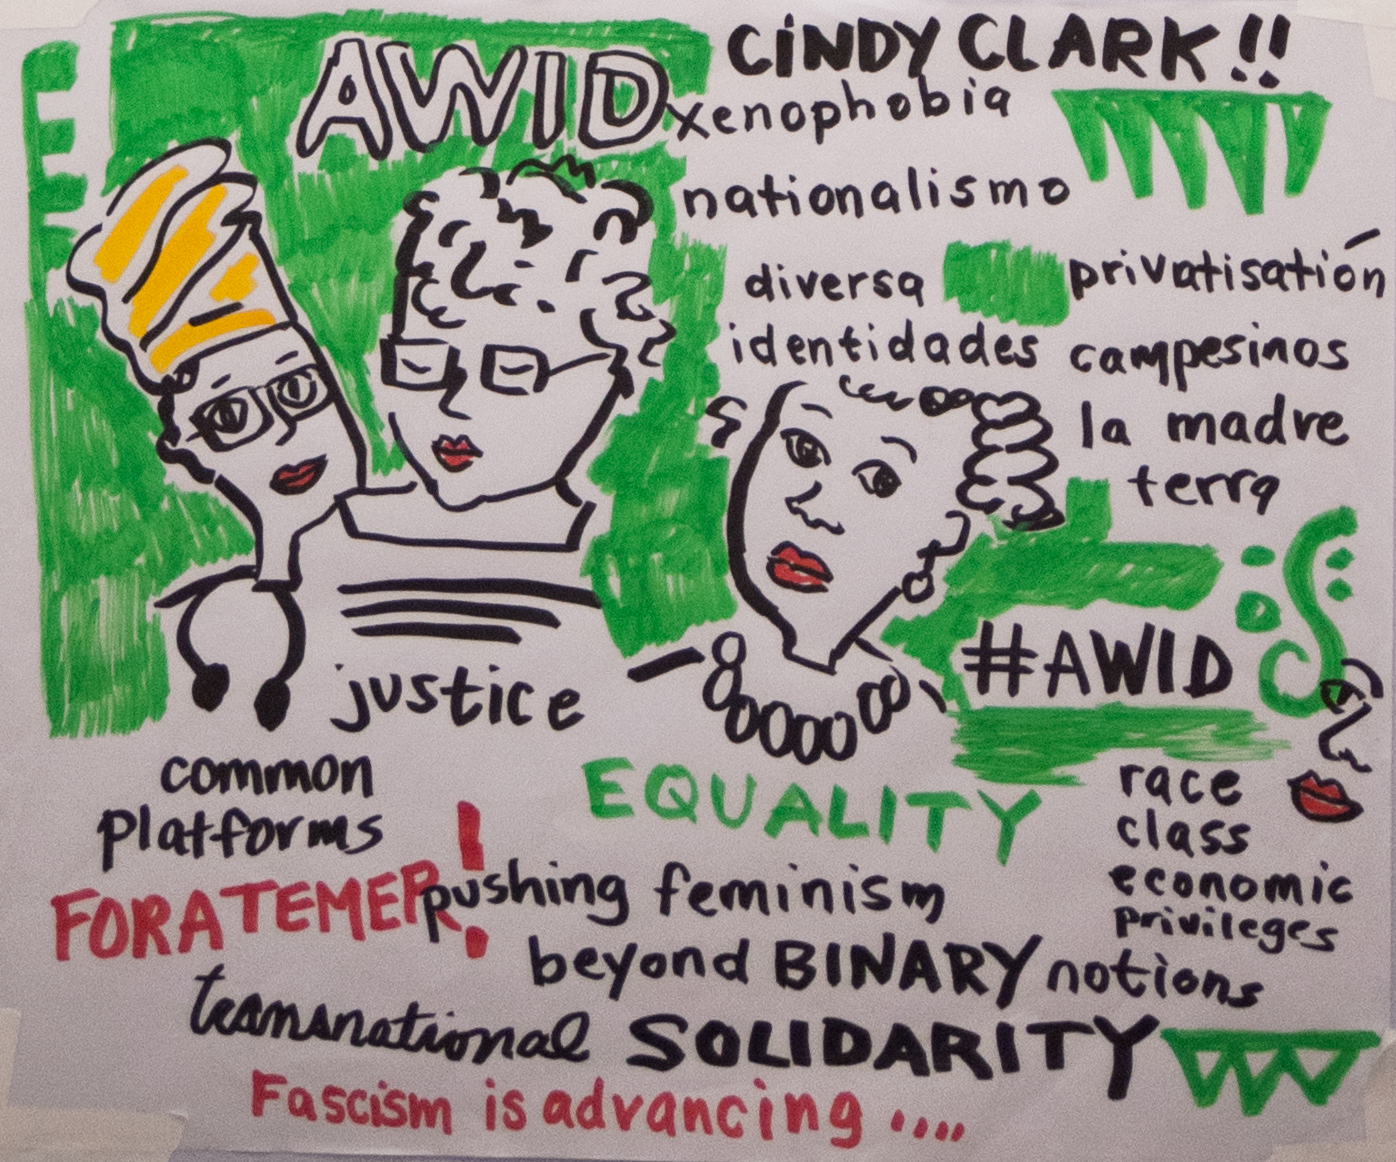 AWID
CINDY CLARK!!
xenophobia
nationalismo
diversa
identidades
privatisatión
campesinos
la madre
terra
#AWID
justice
common
platforms
EQUALITY
race
class
economic
privileges
FORATEMER!
pushing feminism
beyond BINARY notions
transnational SOLIDARITY
Fascism is advancing ....